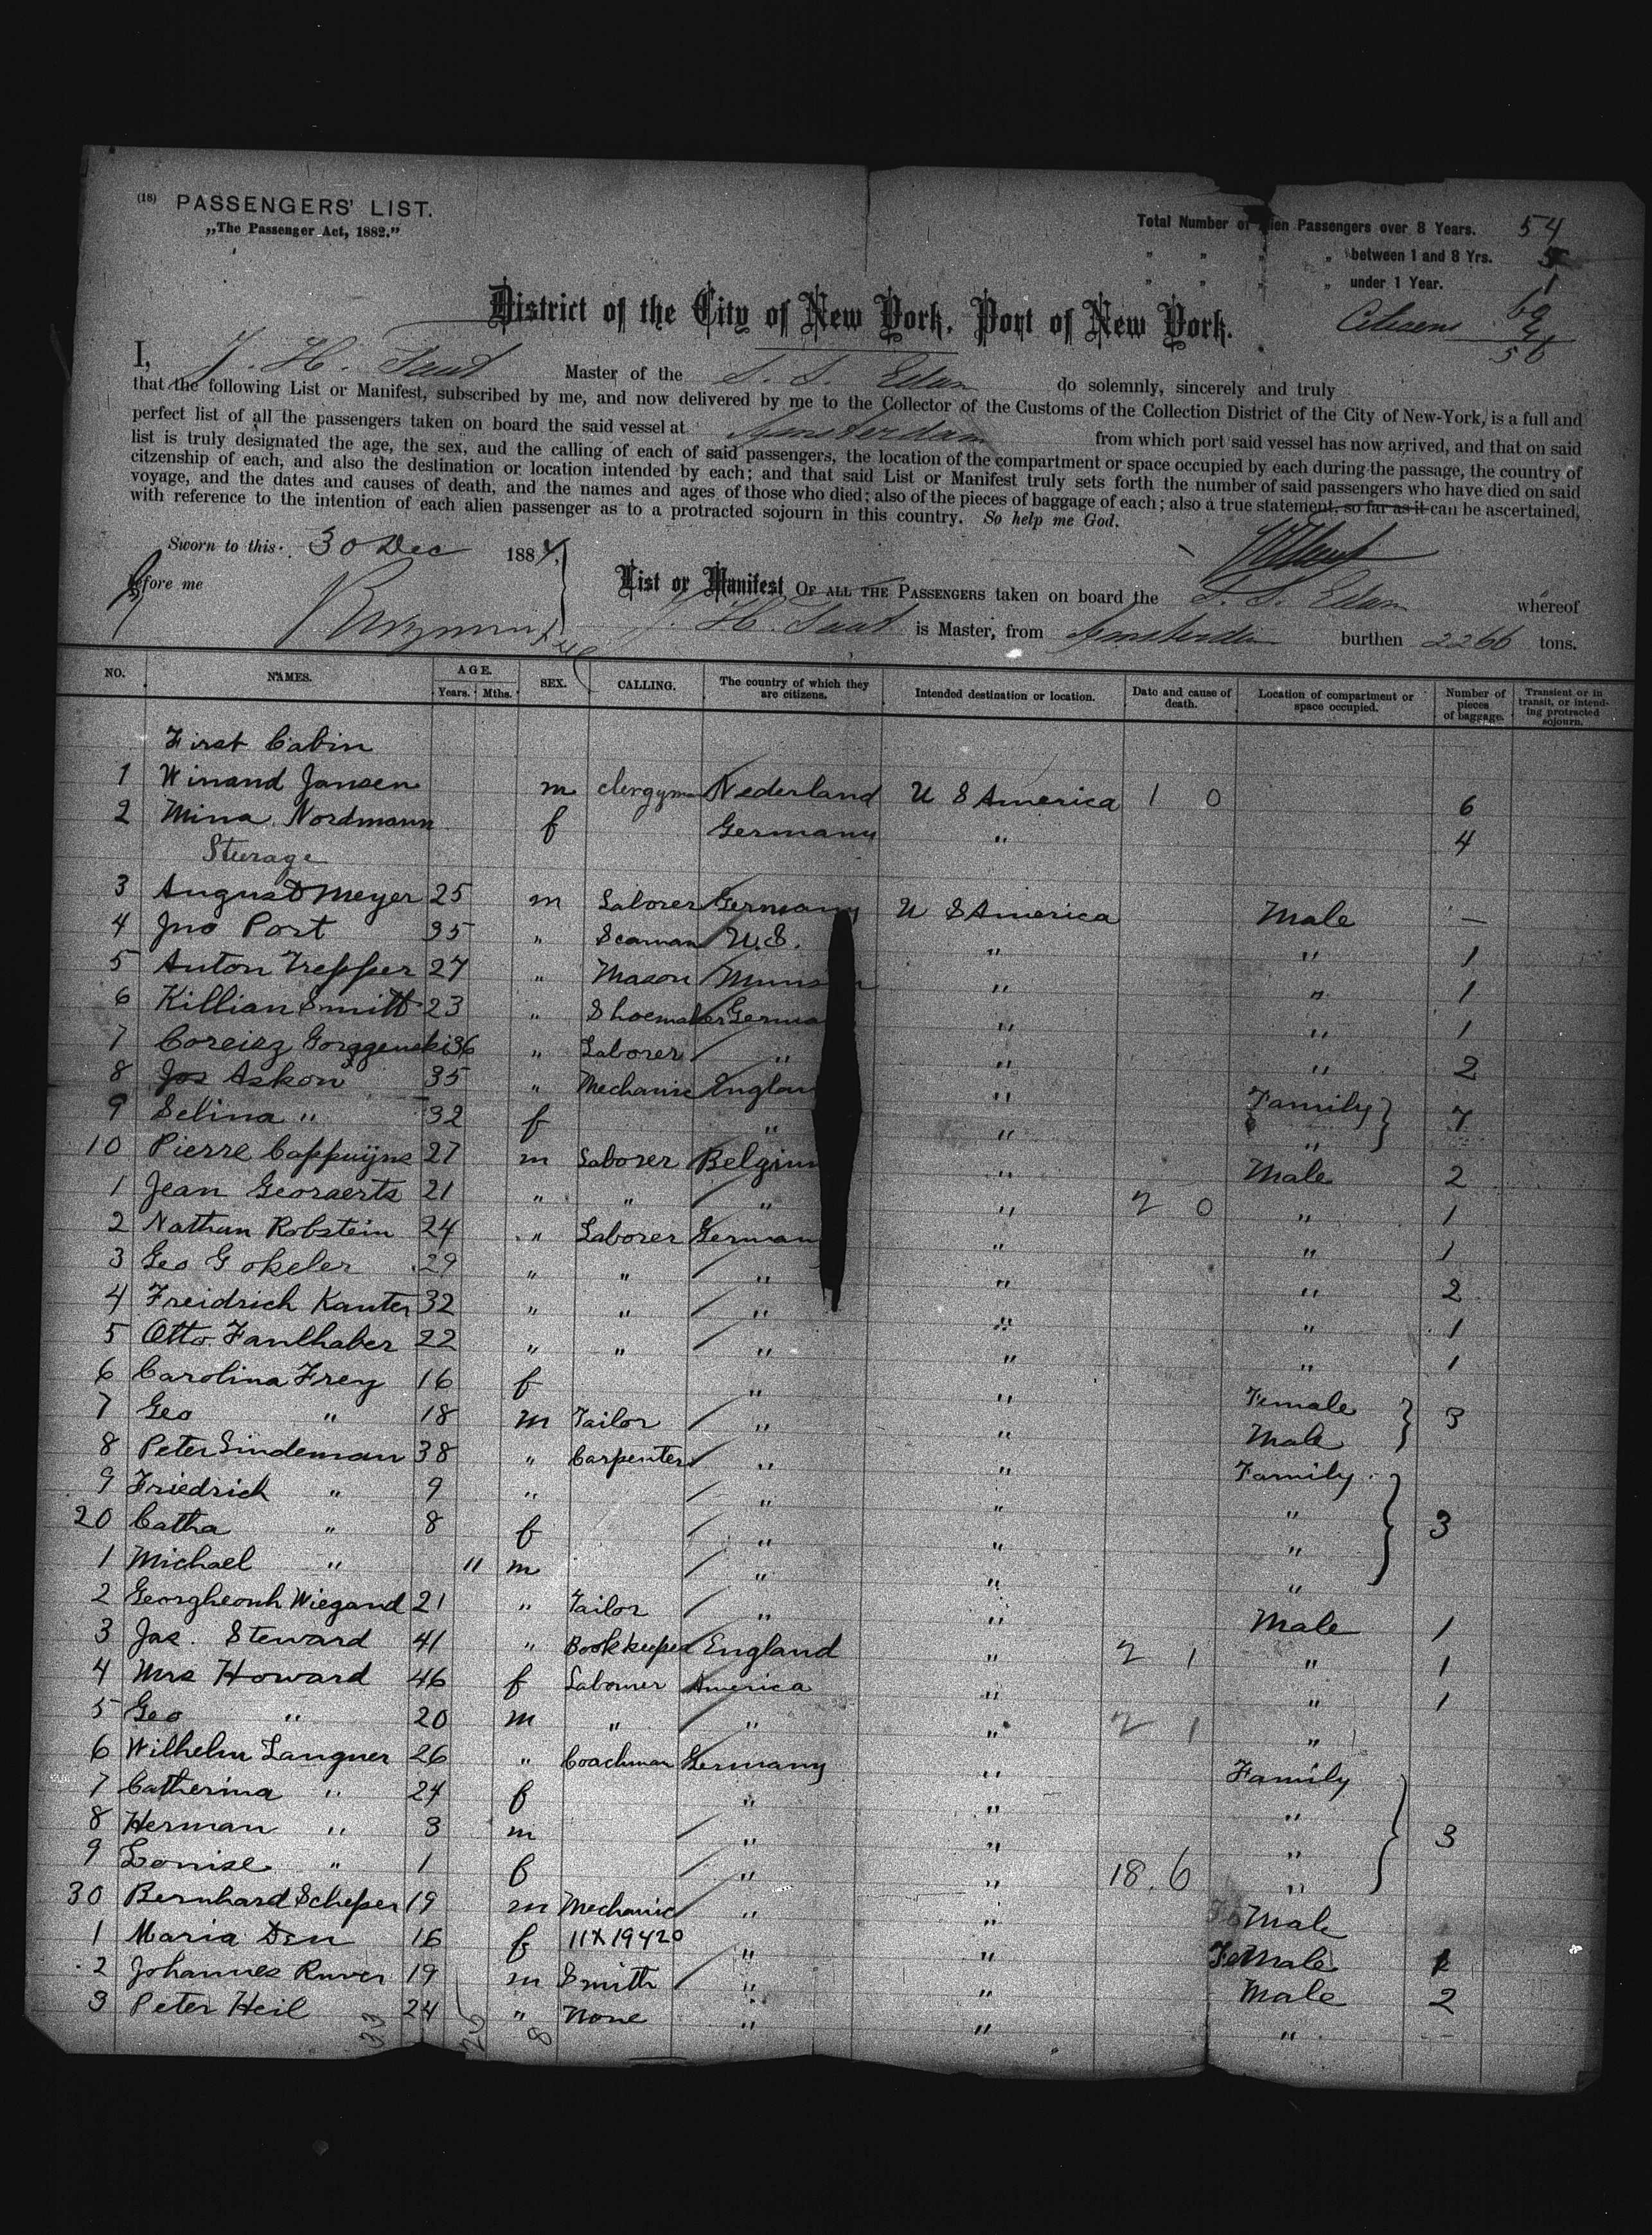 (18) PASSENGERS' LIST.
„The Passenger Act, 1882."
Total Number of Alien Passengers over 8 Years. 54
" " " „ between 1 and 8 Yrs. 5
" " " „ under 1 Year. 1
District of the City of New York, Port of New York.
I, J. H. Taat Master of the S. S. Edam do solemnly, sincerely and truly
that the following List or Manifest, subscribed by me, and now delivered by me to the Collector of the Customs of the Collection District of the City of New-York, is a full and
perfect list of all the passengers taken on board the said vessel at Amsterdam from which port said vessel has now arrived, and that on said
list is truly designated the age, the sex, and the calling of each of said passengers, the location of the compartment or space occupied by each during the passage, the country of
citzenship of each, and also the destination or location intended by each; and that said List or Manifest truly sets forth the number of said passengers who have died on said
voyage, and the dates and causes of death, and the names and ages of those who died; also of the pieces of baggage of each; also a true statement, so far as it can be ascertained,
with reference to the intention of each alien passenger as to a protracted sojourn in this country. So help me God.
Sworn to this 30 Dec 1884,
before me
List or Manifest OF ALL THE PASSENGERS taken on board the S. S. Edam whereof
J. H. Taat is Master, from Amsterdam burthen 2266 tons.
NO. NAMES. AGE. Years. Mths. SEX. CALLING. The country of which they are citizens. Intended destination or location. Date and cause of death. Location of compartment or space occupied. Number of pieces of baggage. Transient or in transit, or intending protracted sojourn.
First Cabin
1 Winand Jansen m clergyman Nederland U S America 1 0 6
2 Mina Nordmann f Germany " 4
Sturage
3 August Meyer 25 m Laborer Germany U S America Male —
4 Jno Port 35 " Seaman U.S. " " 1
5 Anton Trepper 27 " Mason " " 1
6 Killian Smitt 23 " Shoemaker Germa " " 1
7 36 " Laborer " " " 2
8 Jos Askon 35 " Mechanic Englan " Family 7
9 Selina " 32 f " " "
10 Pierre Cappuijns 27 m Laborer Belgium " Male 2
1 Jean Georaerts 21 " " " " 2 0 " 1
2 Nathan Robstein 24 " Laborer German " " 1
3 Geo Gokeler 29 " " " " " 2
4 Freidrich Kanter 32 " " " " " 1
5 Otto Faulhaber 22 " " " " " 1
6 Carolina Frey 16 f " " Female 3
7 Geo " 18 m Tailor " " Male
8 Peter Lindeman 38 " Carpenter " " Family
9 Friedrich " 9 " " " " 3
20 Catha " 8 f " " "
1 Michael " 11 m " " "
2 Wiegand 21 " Tailor " " Male 1
3 Jas. Steward 41 " Bookkeeper England " 2 1 " 1
4 Mrs Howard 46 f Labourer America " " 1
5 Geo " 20 m " " " 2 1 "
6 Wilhelm Langner 26 " Coachman Germany " Family
7 Catherina " 24 f " " "
8 Herman " 3 m " " " 3
9 Louise " 1 f " " 18.6 "
30 Bernhard Scheper 19 m Mechanic " " Male
1 Maria Den 16 f 11X19420 " " Female 1
2 Johannes Ruver 19 m Smith " " Male 2
3 Peter Heil 24 " None " " "
33 25 8